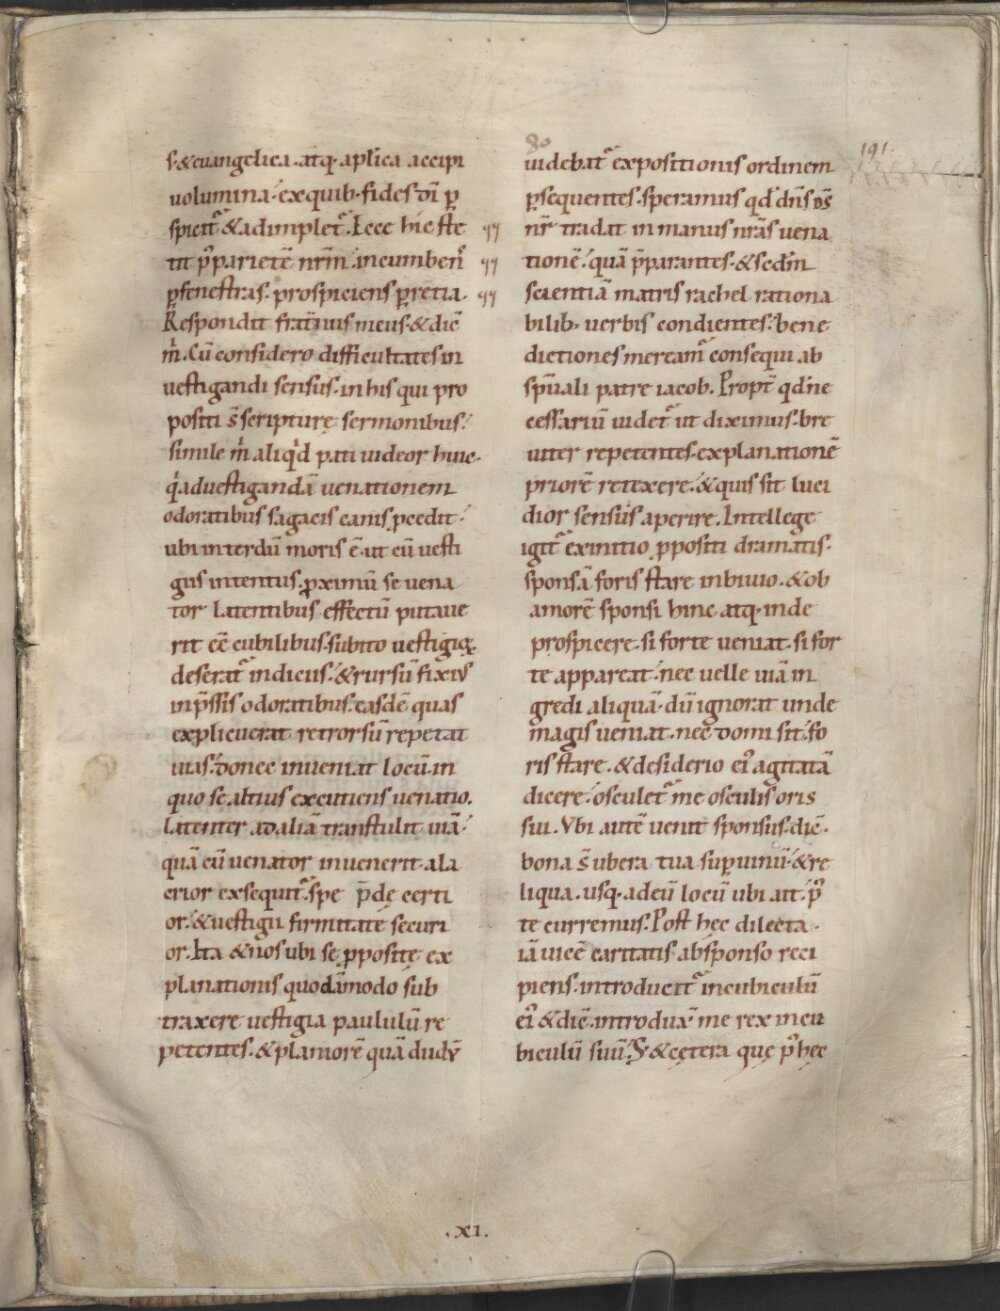 80
191.
s·&euangelica·atq·aplica accipi
uolumina·exquib·fides dī p̄
spicit̃ & adimplet̃. Ecce hic ste
tit p̃ parietē nr̄m· incumbens̃
p̄fenestras· prospiciens p̄retia·
Respondit frat̃nuis meus·& dic̄
m̃. Cū considero difficultates in
uestigandi sensus· in his qui pro
positi s̄ scripturę sermonibus·
simile m̃ aliq̇d pati uideor huic·
q̇ aduestigandā uenationem
odoratibus sagacis canis p̄cedit·
ubi interdū moris ē· ut cū uesti
giis intentus· p̄ximū se uena
tor latentibus effectū putaue
rit eē cubilibus· subito uestigioꝝ
deserat̃ indiciis· & rursū fixis
inp̄ssis odoratibus· easdē quas
explicuerat retrorsū repetat
uias· donec inueniat locū· in
quo se altius excutiens uenatio.
Latenter ad aliā transtulit uiā·
quā cū uenator inuenerit· ala
crior exsequit̃· spe p̄dę certi
or· & uestigii firmitate securi
or. Ita & nos ubi se p̄positę ex
planationis quodāmodo sub
traxere uestigia paululū re
petentes· & planiorē quā dudū
uidebat̃ expositionis ordinem
p̄sequentes· speramus qd̄ dn̄s ds̄
nr̄ tradat in manus nr̄as uena
tionē· quā p̄parantes· & scd̄m
scientiā matris rachel rationa
bilib· uerbis condientes· bene
dictiones meream̃ consequi ab
spūali patre iacob. Propt̃ qd̄ ne
cessariū uidet̃ ut diximus· bre
uiter repetentes· explanationē
priorē retexere· & quis sit luci
dior sensus aperire. Intellege
igit̃ ex initio p̄positi dramatis·
sponsā foris stare in biuio· & ob
amorē sponsi hinc atq· inde
prospicere· si forte ueniat· si for
te appareat· nec uelle uiā in
gredi aliquā· dū ignorat unde
magis ueniat· nec domi sit· fo
ris stare· & desiderio ei᾽ agitatā
dicere· osculet̃ me osculis oris
sui. Vbi autē uenit sponsus· dic̄·
bona s̄ ubera tua sup̄ uinū· & re
liqua· usq· ad eū locū ubi ait· p᾽
te curremus. Post hęc dilecta·
iā uicē caritatis ab sponso reci
piens· introducit̃ in cubiculū
ei᾽ & dic̄· introdux̃ me rex in cu
biculū suū. S; & cętera quę p᾽ hęc
.XI.